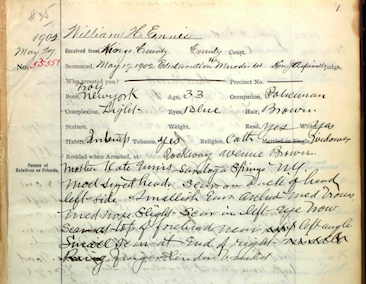 #35
1
1903 William H Ennis
May 27 Received from Kings County County Court.
No. 53351 Sentenced, May 17, 1902 Electrocution Murder 1st Judge.
Who arrested you? Precinct No.
Born, Troy New York Age, 33 Occupation, Policeman
Complexion, Light Eyes, Blue Hair, Brown
Stature, Weight, Read, yes Write yes
Habits, Intemp Tobacco, yes Religion, Cath Married or Single, Widower
Resided when Arrested, at Rockway avenue
Names of Relatives or Friends. Mother Kate Ennis Saratoga Springs N.Y.
Med sized head. Scar on back of head
left side Smallish Ears Arched med Brows
med nose Slight Scar in left Eye brow
Scar at top of forehead near left angle
Small Scar at End of right
finger